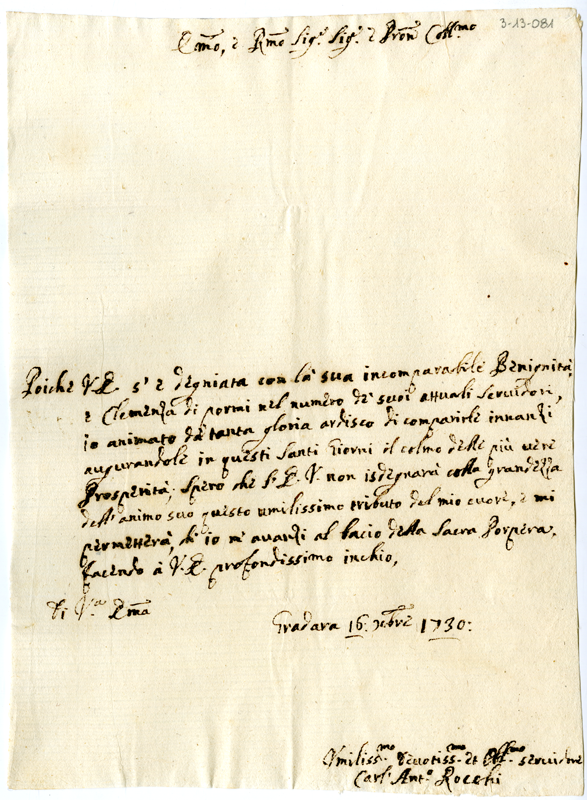 3-13-081
Emo, e Rmo Sig.r Sig.r e Pron Coll.mo
Poiche V.E. s'e degniata con la sua incomparabile Benignità,
e Clemenza di pormi nel numero de suoi attuali servidori,
io animato da tanta gloria ardisco di comparirle innanzi
augurandole in questi Santi Giorni il colmo delle più vere
Prosperità; spero che l'E.V. non isdegnarà colla grandezza
dell'animo suo questo umilissimo tributo del mio cuore, e mi
permetterà, ch'io m'avanzi al bacio della Sacra Porpera,
facendo à V.E. profondissimo inchio,
Di V.ra Ema
Gradara 16: Xbre 1730:
Umiliss.mo devotiss.mo et Obb.mo servidore
Carl' Ant.o Rocchi